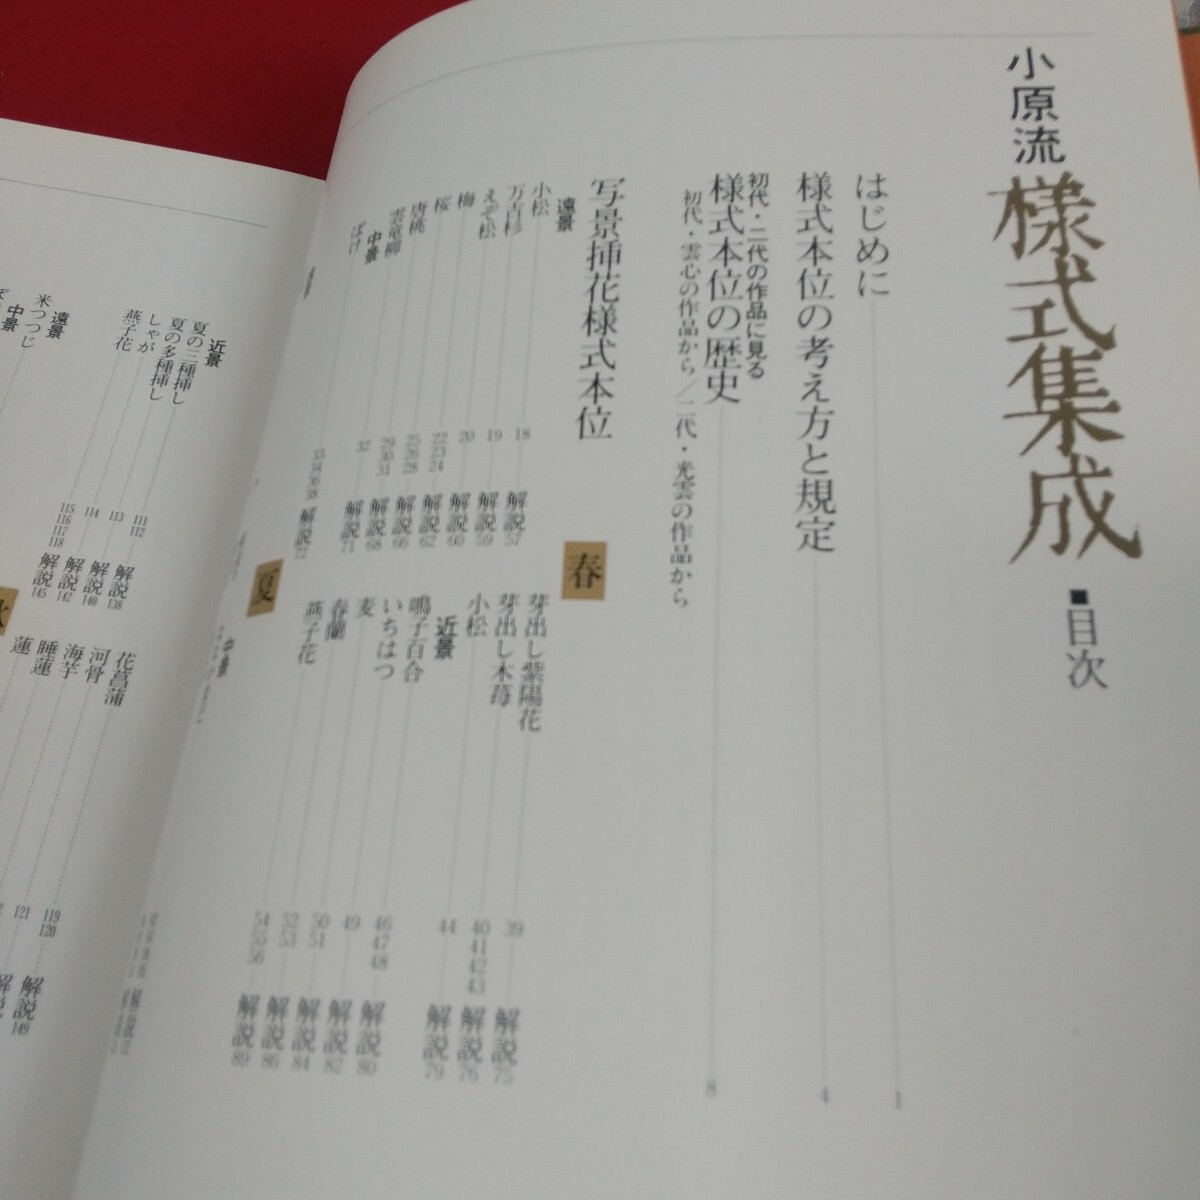 小原流
様式集成
■目次
はじめに 1
様式本位の考え方と規定 4
初代・二代の作品に見る
様式本位の歴史 8
初代・雲心の作品から/二代・光雲の作品から
写景挿花様式本位
春
遠景
小松 18 解説57
万古杉 19 解説59
えぞ松 20 解説60
梅 22 23 24 解説62
桜 25 26 28 解説66
唐桃 29 30 31 解説68
雲竜柳 32 解説71
中景
ぼけ 33 34 36 38 解説72
芽出し紫陽花 39 解説75
芽出し木苺 40 41 42 43 解説76
小松 44 解説79
近景
鳴子百合 46 47 48 解説80
いちはつ 49 解説82
麦 50 51 解説84
春蘭 52 53 解説86
燕子花 54 55 56 解説89
夏
遠景
中景
近景
夏の三種挿し 111 112 解説138
夏の多種挿し 113 解説140
しゃが 114 解説142
燕子花 115 116 117 118 解説145
花菖蒲 119 120 解説149
河骨 121
海芋
睡蓮
蓮
遠景
米つつじ
中景